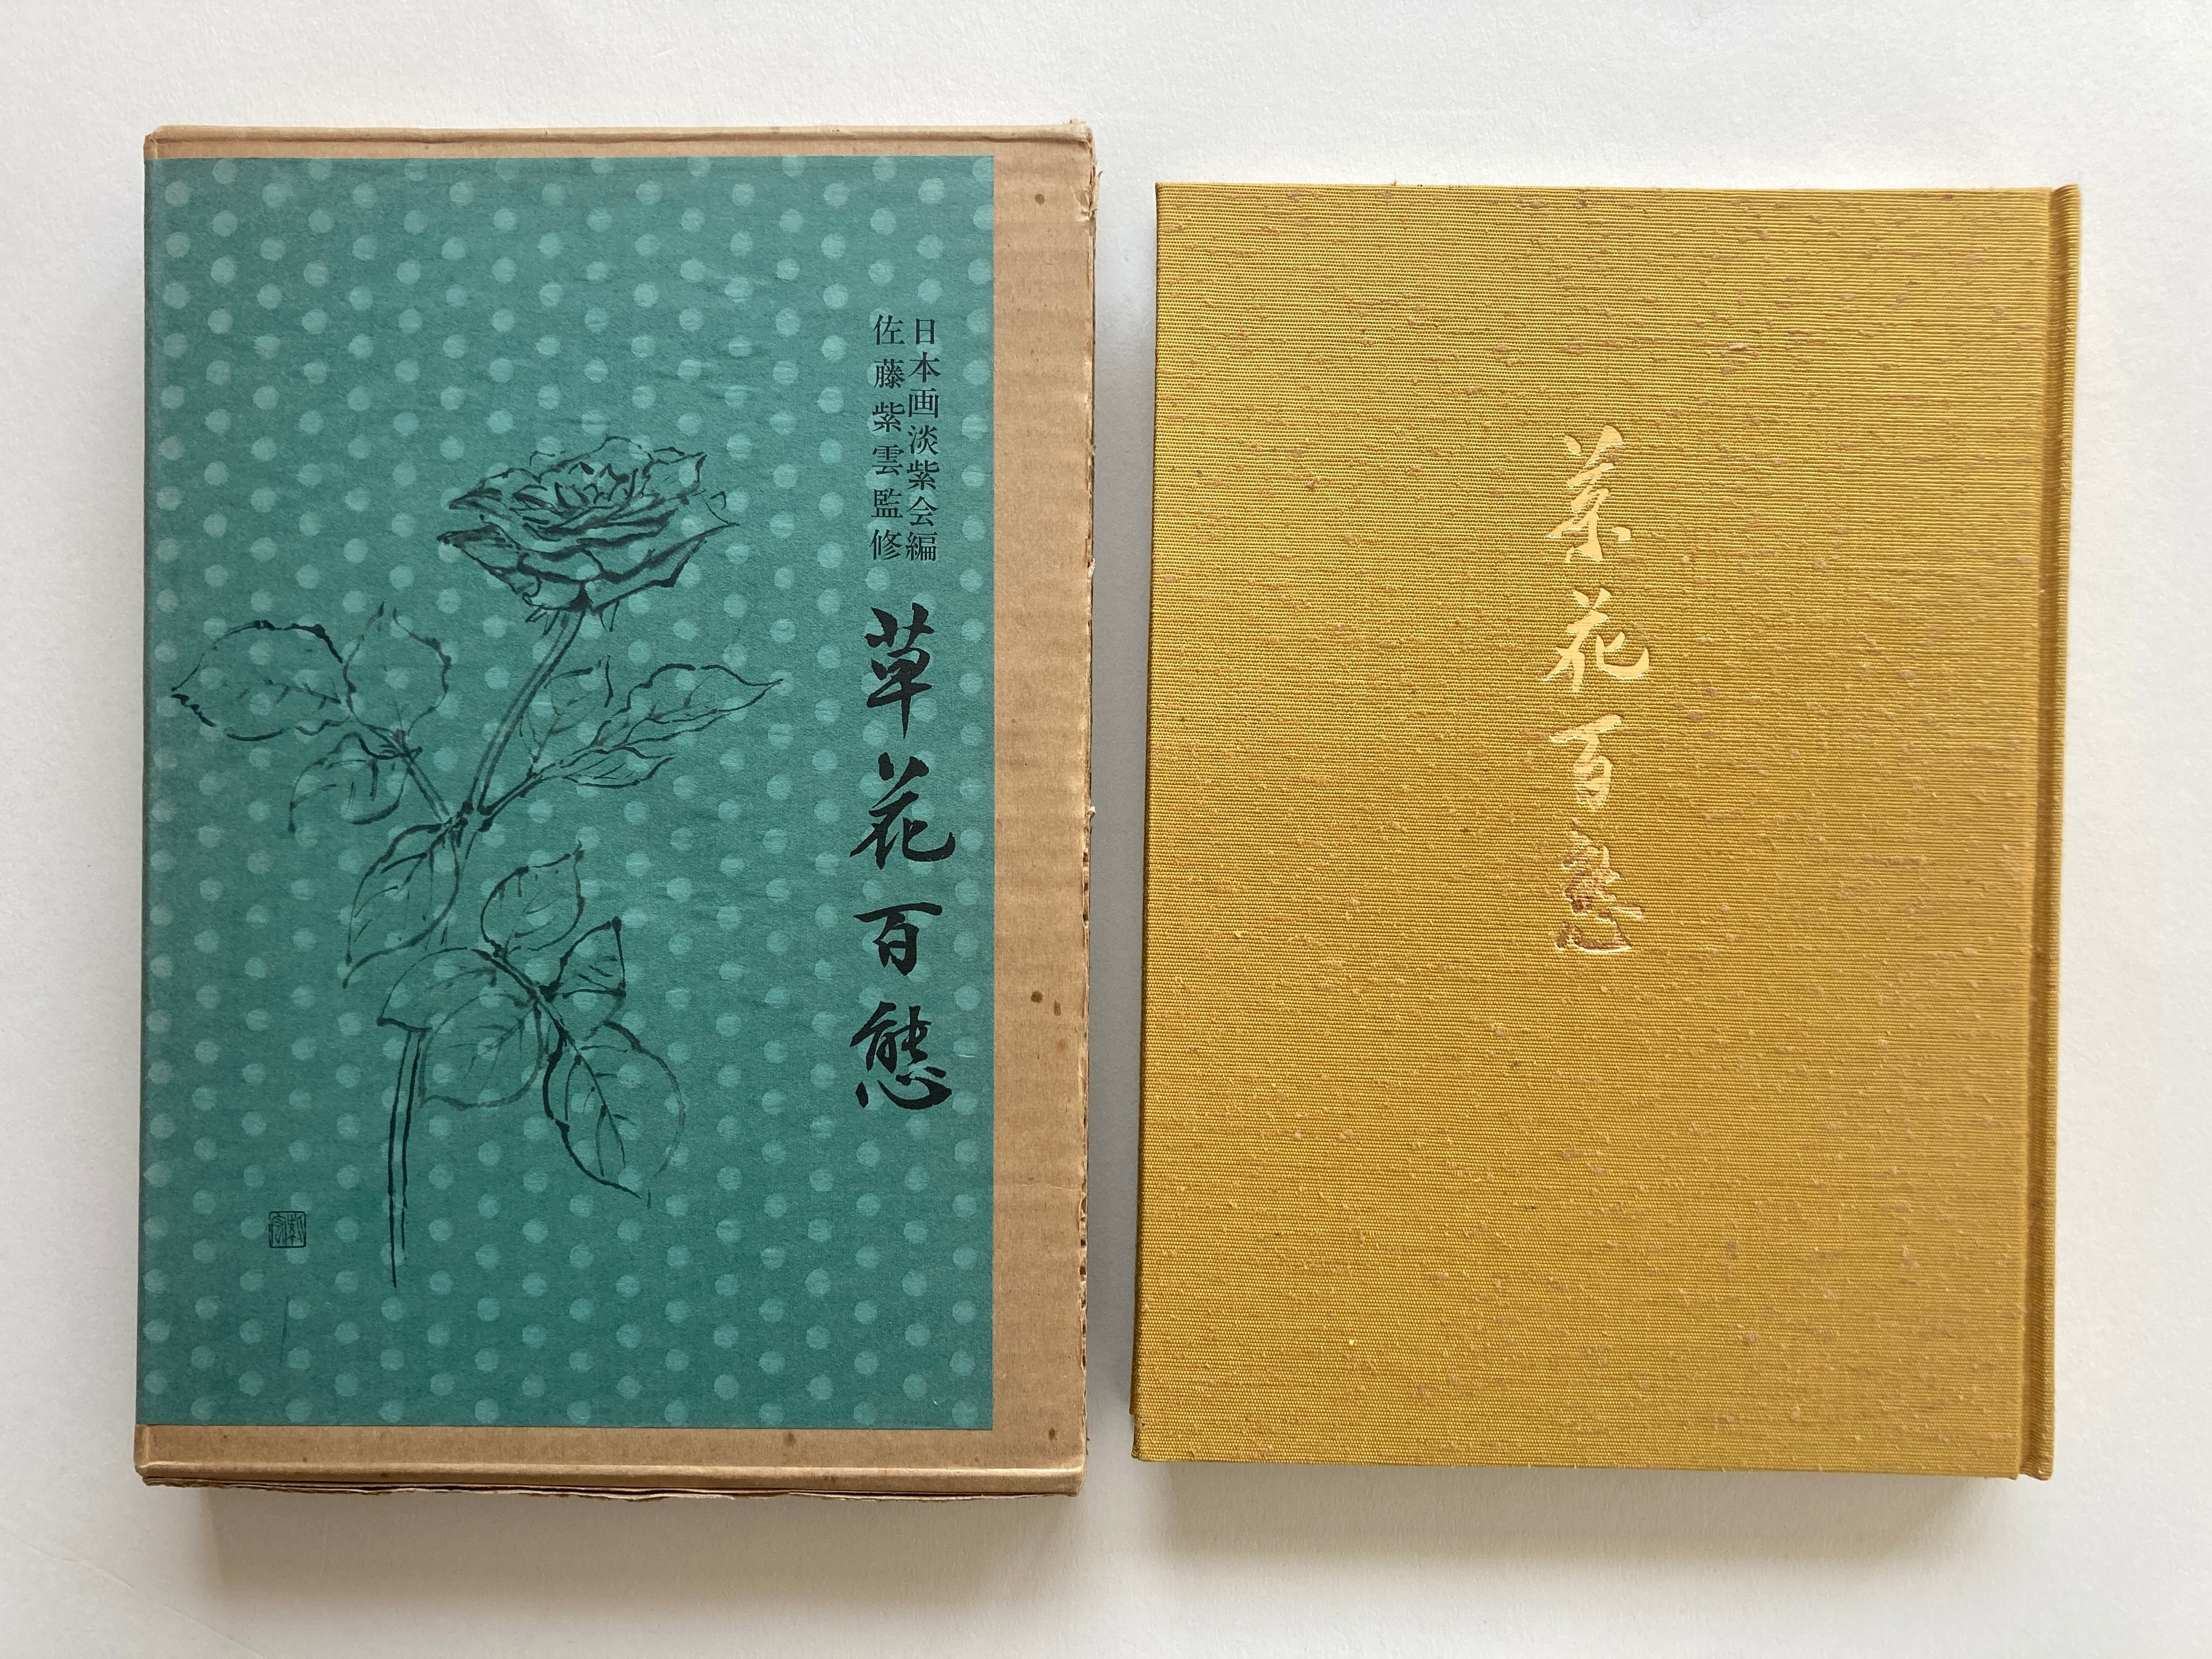 日本画淡紫会編
佐藤紫雲監修
草花百態
草花百態